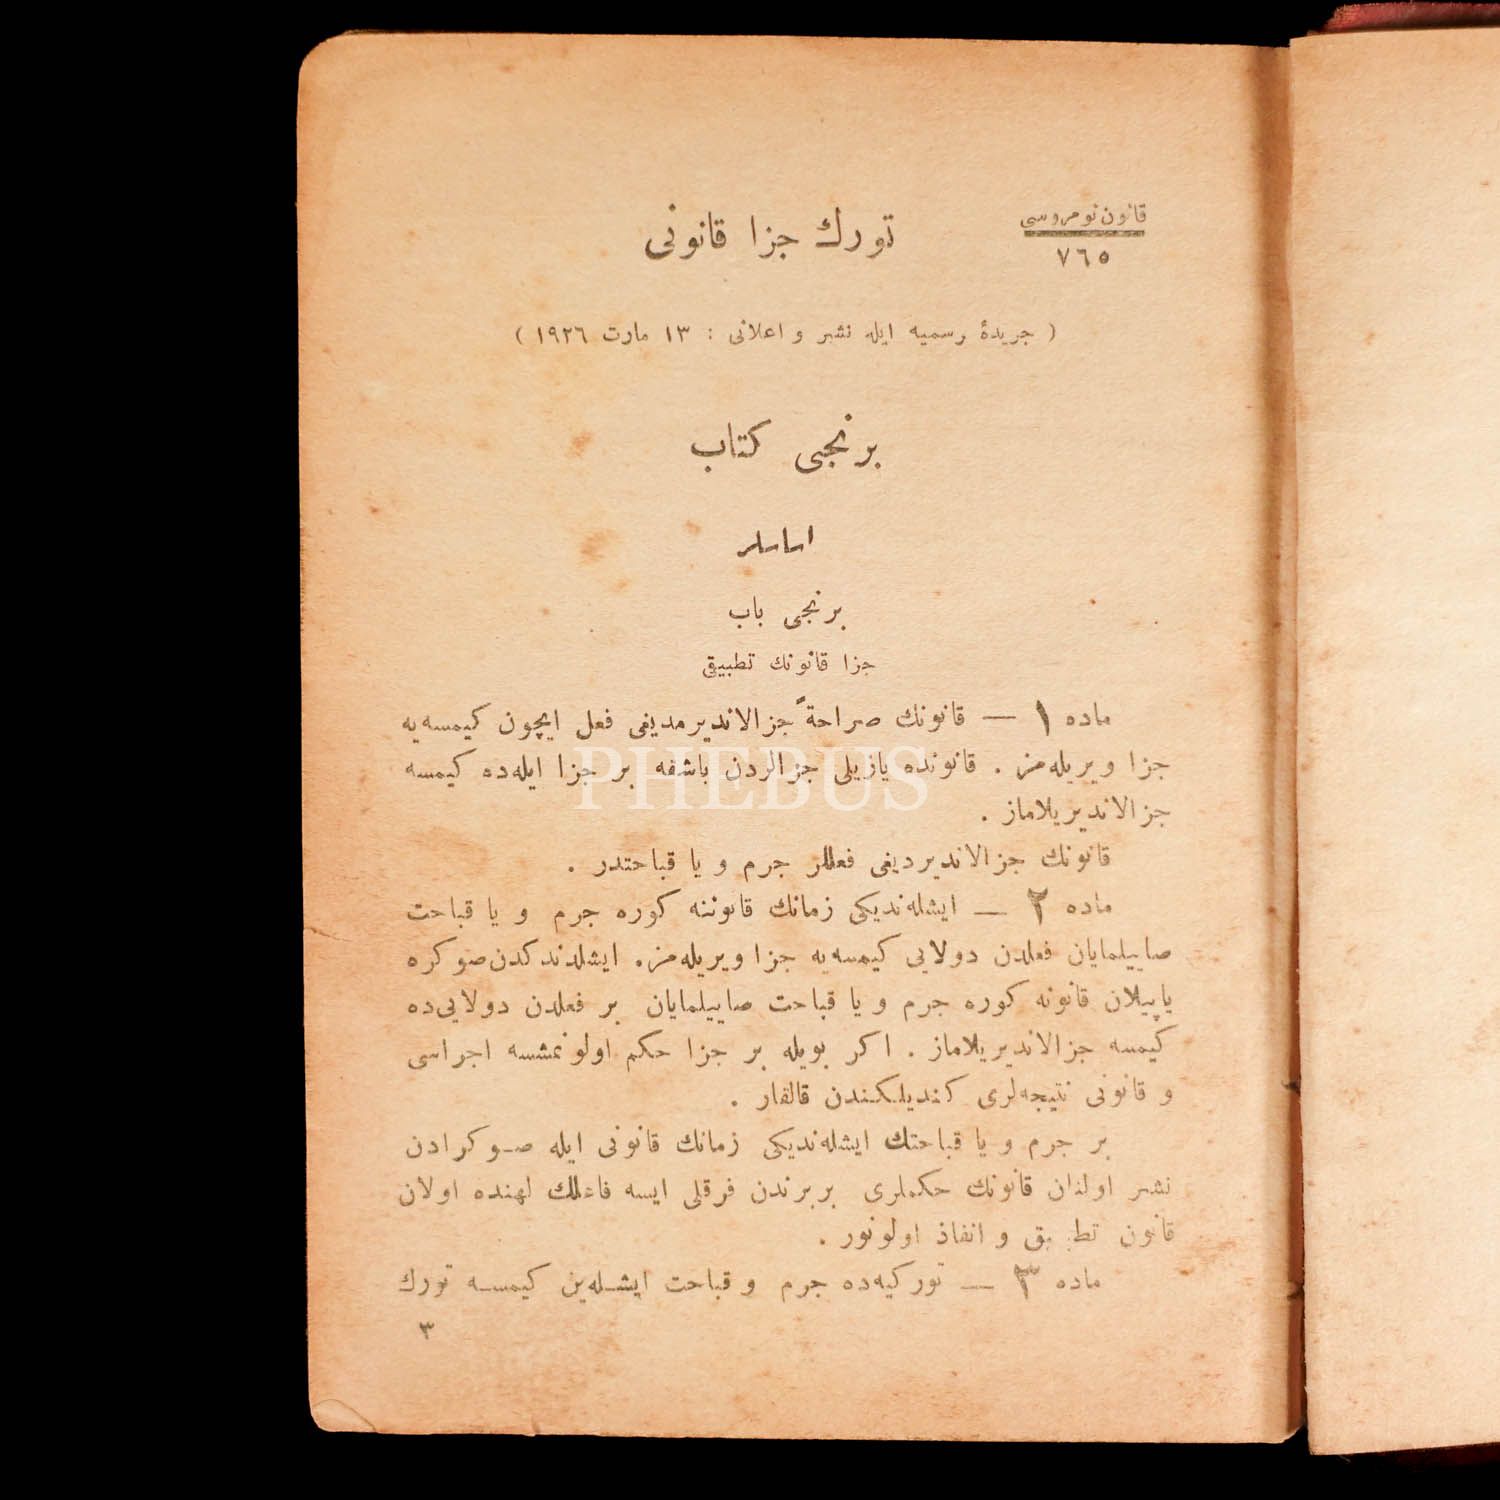 قانون نومروسی
٧٦٥
تورك جزا قانونی
( جریدهٔ رسمیه ایله نشر و اعلانی : ١٣ مارت ١٩٢٦ )
برنجی كتاب
اساسلر
برنجی باب
جزا قانونك تطبیقی
ماده ١ — قانونك صراحةً جزالاندیرمدیغی فعل ایچون كیمسه‌یه
جزا ویریله‌مز . قانونده یازیلی جزالردن باشقه بر جزا ایله‌ده كیمسه
جزالاندیریلاماز .
قانونك جزالاندیردیغی فعللر جرم و یا قباحتدر .
ماده ٢ — ایشله‌ندیكی زمانك قانوننه كوره جرم و یا قباحت
صاییلمایان فعلدن دولایی كیمسه‌یه جزا ویریله‌مز. ایشلندكدن صوكره
یاپیلان قانونه كوره جرم و یا قباحت صاییلمایان بر فعلدن دولایی‌ده
كیمسه جزالاندیریلاماز . اكر بویله بر جزا حكم اولونمشسه اجراسی
و قانونی نتیجه‌لری كندیلكندن قالقار .
بر جرم و یا قباحتك ایشله‌ندیكی زمانك قانونی ایله صوكرادن
نشر اولنان قانونك حكملری بربرندن فرقلی ایسه فاعللك لهنده اولان
قانون تطبیق و انفاذ اولونور .
ماده ٣ — توركیه‌ده جرم و قباحت ایشله‌ین كیمسه تورك
٣
PHEBUS